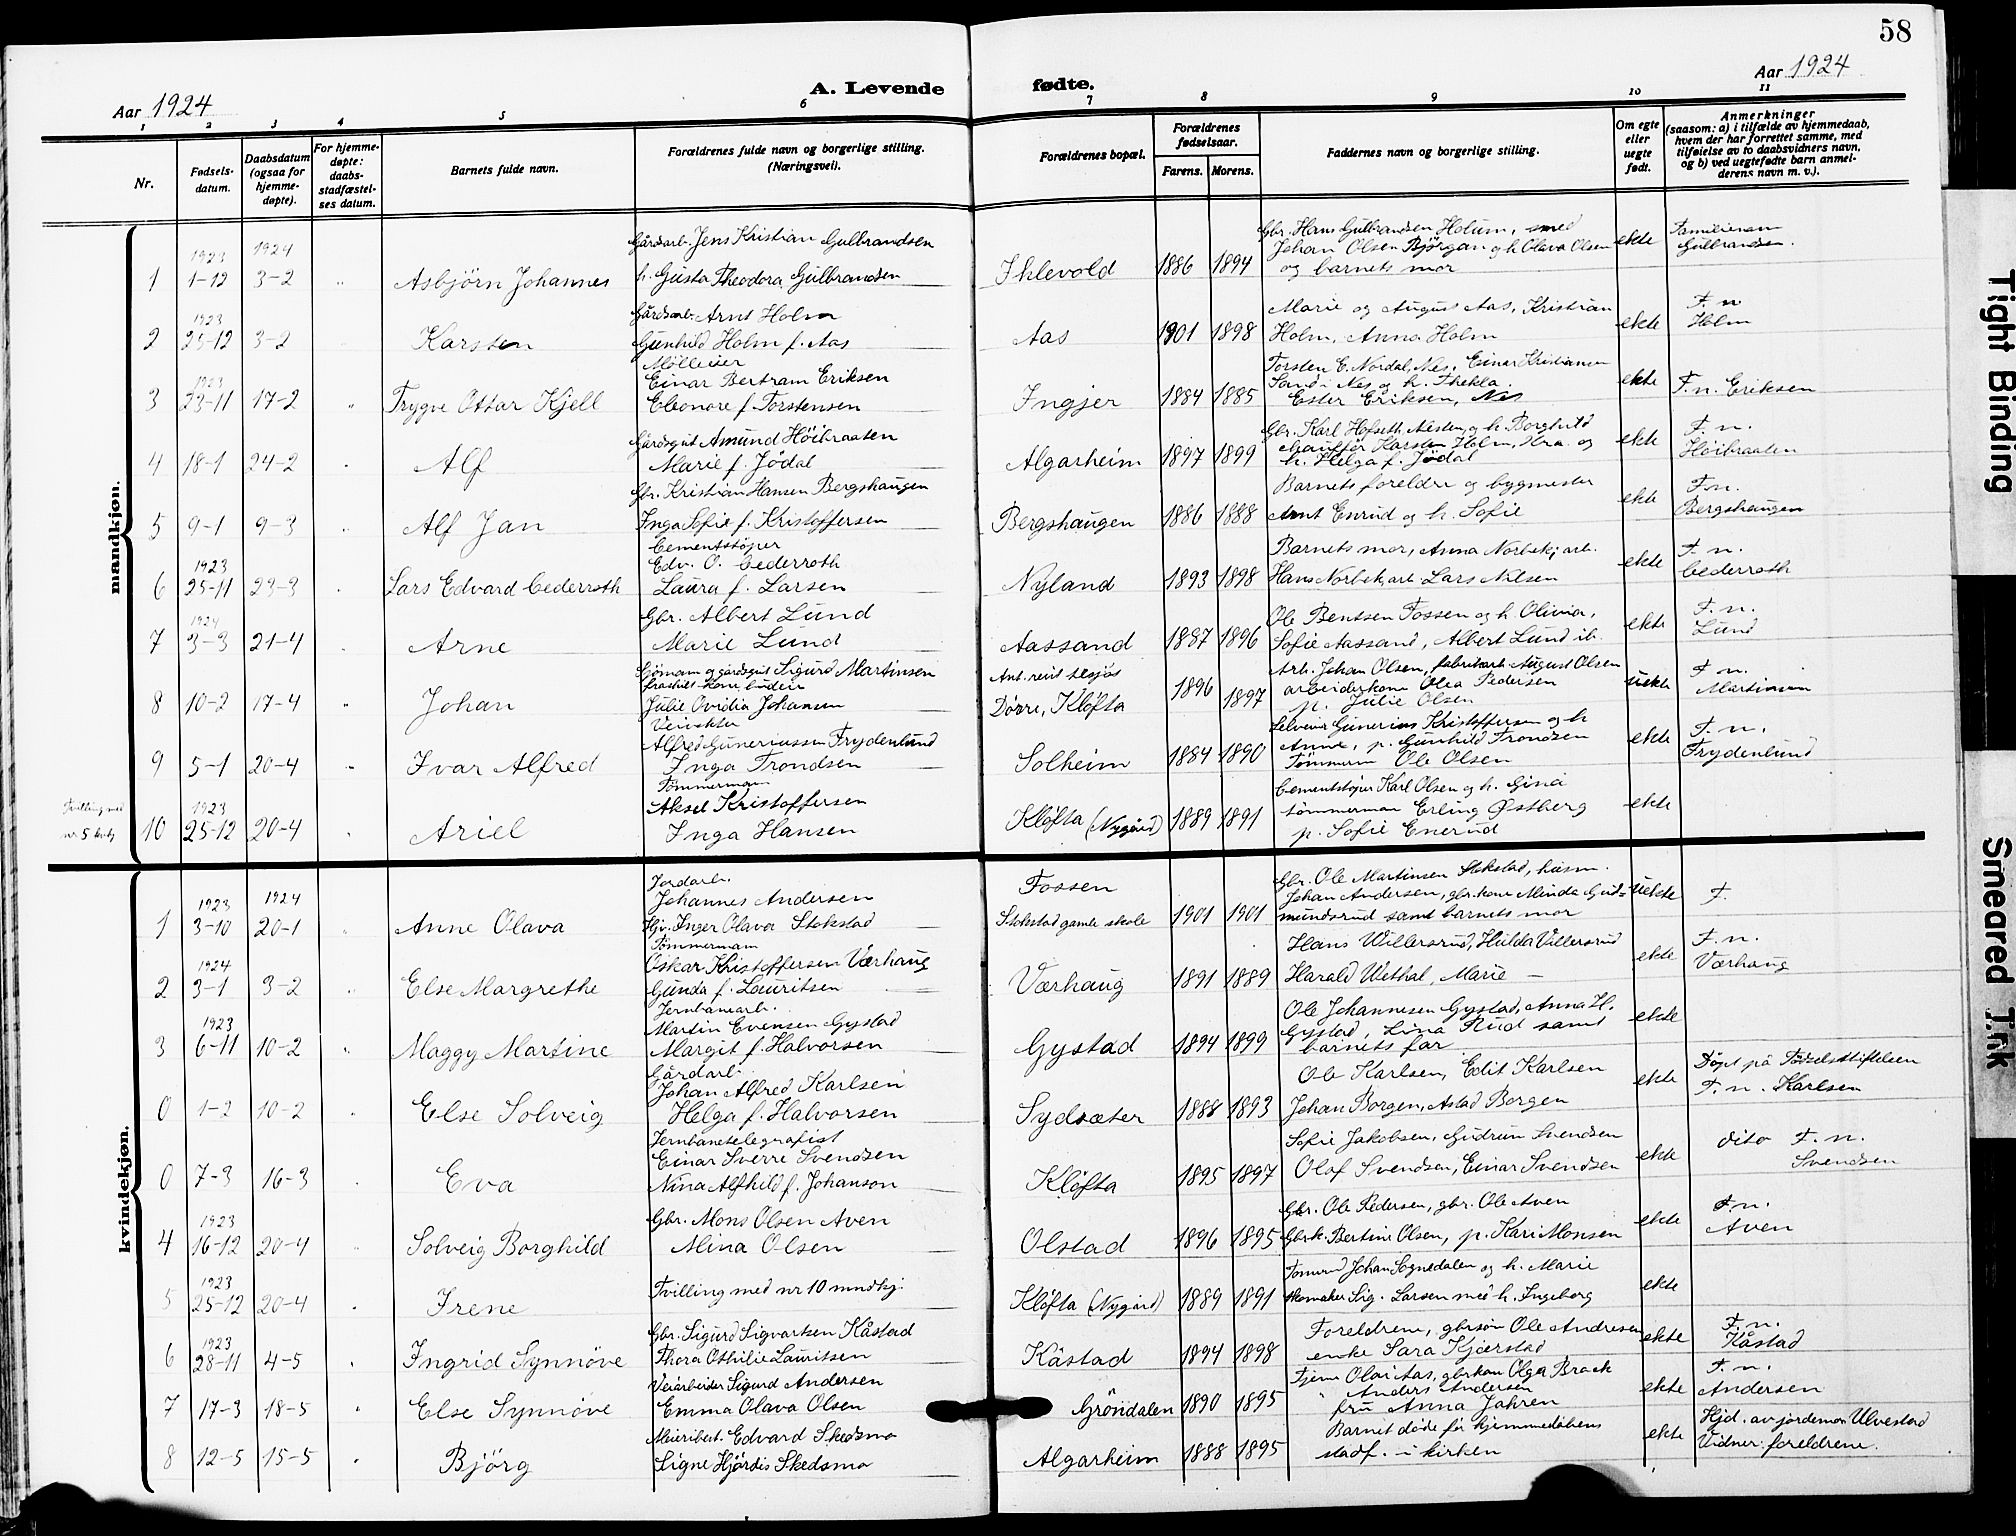 58
Aar 1924
A. Levende
fødte.
Aar 1924
1 2 3 4 5 6 7 8 9 10 11
Nr.
Fødsels-
datum.
Daabsdatum
(ogsaa for
hjemme-
døpte).
For hjemme-
døpte:
daabs-
stadfæstel-
ses datum.
Barnets fulde navn.
Forældrenes fulde navn og borgerlige stilling.
(Næringsvei).
Forældrenes bopæl.
Forældrenes
fødselsaar.
Farens. Morens.
Faddernes navn og borgerlige stilling.
Om egte
eller
uegte
født.
Anmerkninger
(saasom: a) i tilfælde av hjemmedaab,
hvem der har forrettet samme, med
tilføielse av to daabsvidners navn,
og b) ved uegtefødte barn anmel-
derens navn m. v.).
mandkjøn.
1923 1924
1 1-12 3-2 Asbjörn Johannes
Gårdsarb. Jens Kristian Gulbrandsen
h. Gusta Theodora Gulbrandsen
Ihlevold 1886 1894
Gbr. Hans Gulbrandsen Holum, smed
Johan Olsen Björgan og h. Olava Olsen
og barnets mor
ekte
Familienavn
Gulbrandsen.
1923
2 25-12 3-2 Karsten
Gårdsarb. Arnt Holm
Gunhild Holm f. Aas
Aas 1901 1898
Marie og August Aas, Kristian
Holm, Anna Holm
ekte
F. n
Holm
1923
3 23-11 17-2 Trygve Ottar Kjell
Mølleier
Einar Bertram Eriksen
Eleonore f. Torstensen
Ingjer 1884 1885
Torsten E. Nordal, Nes, Einar Kristiansen
Sand i Nes og h. Thekla.
Ester Eriksen, Nes
ekte
F. n. Eriksen
4 18-1 24-2 Alf
Gårdsgut Amund Höibraaten
Marie f. Jödal
Algarheim 1897 1899
Gbr. Karl Hofseth, Nesten, og h. Borghild
chaufför Karsten Holm, Kra. og
h. Helga f. Jödal
ekte
F. n.
Höibraaten
5 9-1 9-3 Alf Jan
Gbr. Kristian Hansen Bergshaugen
Inga Sofie f. Kristoffersen
Bergshaugen 1886 1888
Barnets foreldre og bygmester
Arnt Enrud og h. Sofie
ekte
F. n.
Bergshaugen
1923
6 25-11 23-3 Lars Edvard Cederroth
Cementstöper
Edv. O. Cederroth
Laura f. Larsen
Nyland 1893 1898
Barnets mor, Anna Norbek, arb.
Hans Norbek, arb. Lars Nilsen
ekte
F. n.
Cederroth
1924
7 3-3 21-4 Arne
Gbr. Albert Lund
Marie Lund
Aassand 1887 1896
Ole Bentsen Fossen og h. Olivia,
Sofie Aassand, Albert Lund ib.
ekte
F. n.
Lund
8 10-2 17-4 Johan
Sjömann og gårdsgut Sigurd Martinsen
fraskilt kone, budeie
Julie Ovidia Johansen
Ant. reist tilsjös
Døvre, Klöfta 1896 1897
Arb. Johan Olsen, fabrikarb. August Olsen
arbeiderkone Olea Pedersen
p. Julie Olsen
uekte
F. n.
Martinsen
9 5-1 20-4 Ivar Alfred
Veivokter
Alfred Guneriussen Frydenlund
Inga Trondsen
Solheim 1884 1890
Selveier Gunerius Kristoffersen og h.
Anne, p. Gunhild Trondsen
Tömmerm Ole Olsen
ekte
F. n.
Frydenlund
Tvilling med
nr 5 kvkj
1923
10 25-12 20-4 Ariel
Tömmermann
Aksel Kristoffersen
Inga Hansen
Klöfta (Nygård) 1889 1891
Cementstöper Karl Olsen og h. Gina
tömmerman Erling Østberg
p. Sofie Enerud
ekte
kvindekjøn.
1923 1924
1 3-10 20-1 Anne Olava
Jordarb.
Johannes Andersen
Pij. Inger Olava Stokstad
Fossen
Stokstad gamle skole 1901 1901
Gbr. Ole Martinsen Stokstad, husm.
Johan Andersen, gbr.kone Minda Gud-
mundsrud samt barnets mor
uekte
F.
1924
2 3-1 3-2 Else Margrethe
Tömmermann
Oskar Kristoffersen Værhaug
Gunda f. Lauritsen
Værhaug 1891 1889
Hans Willersrud, Hulda Willersrud
Harald Wethal, Marie —
ekte
F. n.
Værhaug
1923
3 6-11 10-2 Maggy Martine
Jernbanearb.
Martin Evensen Gystad
Margit f. Halvorsen
Gystad 1894 1899
Ole Johannesen Gystad, Anna H.
Gystad, Lina Rud samt
barnets far
ekte
0 1-2 10-2 Else Solveig
Gårdarb.
Johan Alfred Karlsen
Helga f. Halvorsen
Sydsæter 1888 1893
Ole Karlsen, Edit Karlsen
Johan Borgen, Astad Borgen
ekte
Döpt på Födselsstiftelsen
F. n. Karlsen
0 7-3 16-3 Eva
Jernbanetelegrafist
Einar Sverre Svendsen
Nina Alfhild f. Johanson
Klöfta 1895 1897
Sofie Jakobsen, Gudrun Svendsen
Olaf Svendsen, Einar Svendsen
ekte
dito F. n.
Svendsen
1923
4 16-12 20-4 Solveig Borghild
Gbr. Mons Olsen Aven
Mina Olsen
Olstad 1896 1895
Gbr. Ole Pedersen, gbr. Ole Aven
Gbrk. Bertine Olsen, p. Kari Monsen
ekte
F. n.
Aven
1923
5 25-12 20-4 Irene
Tvilling med nr 10 mndkj.
Klöfta (Nygård) 1889 1891
Tømrmd Johan Sognedalen og h. Marie
skomaker Sig. Larsen med h. Ingeborg
ekte
1923
6 28-11 4-5 Ingrid Synnöve
Gbr. Sigurd Sigvartsen Kåstad
Thora Othilie Lauritsen
Kåstad 1894 1898
Foreldrene, gbrsön Ole Andresen
enke Sara Kjærstad
ekte
F. n.
Kåstad
7 17-3 18-5 Else Synnöve
Veiarbeider Sigurd Andersen
Emma Olava Olsen
Gröndalen 1890 1895
Tjener Olav Aas, gbrkone Olga Brack
" Anders Andersen
fru Anna Jahren
ekte
F. n.
Andersen
8 12-5 15-5 Björg
Meieribest. Edvard Skedsmo
Signe Hjördis Skedsmo
Algarheim 1888 1895
Barnet döde för hjemmedåbens
stadf. i kirken
ekte
Hjd. av jordemor Ulvestad
Vidner: foreldrene.
Tight Binding
Smeared Ink